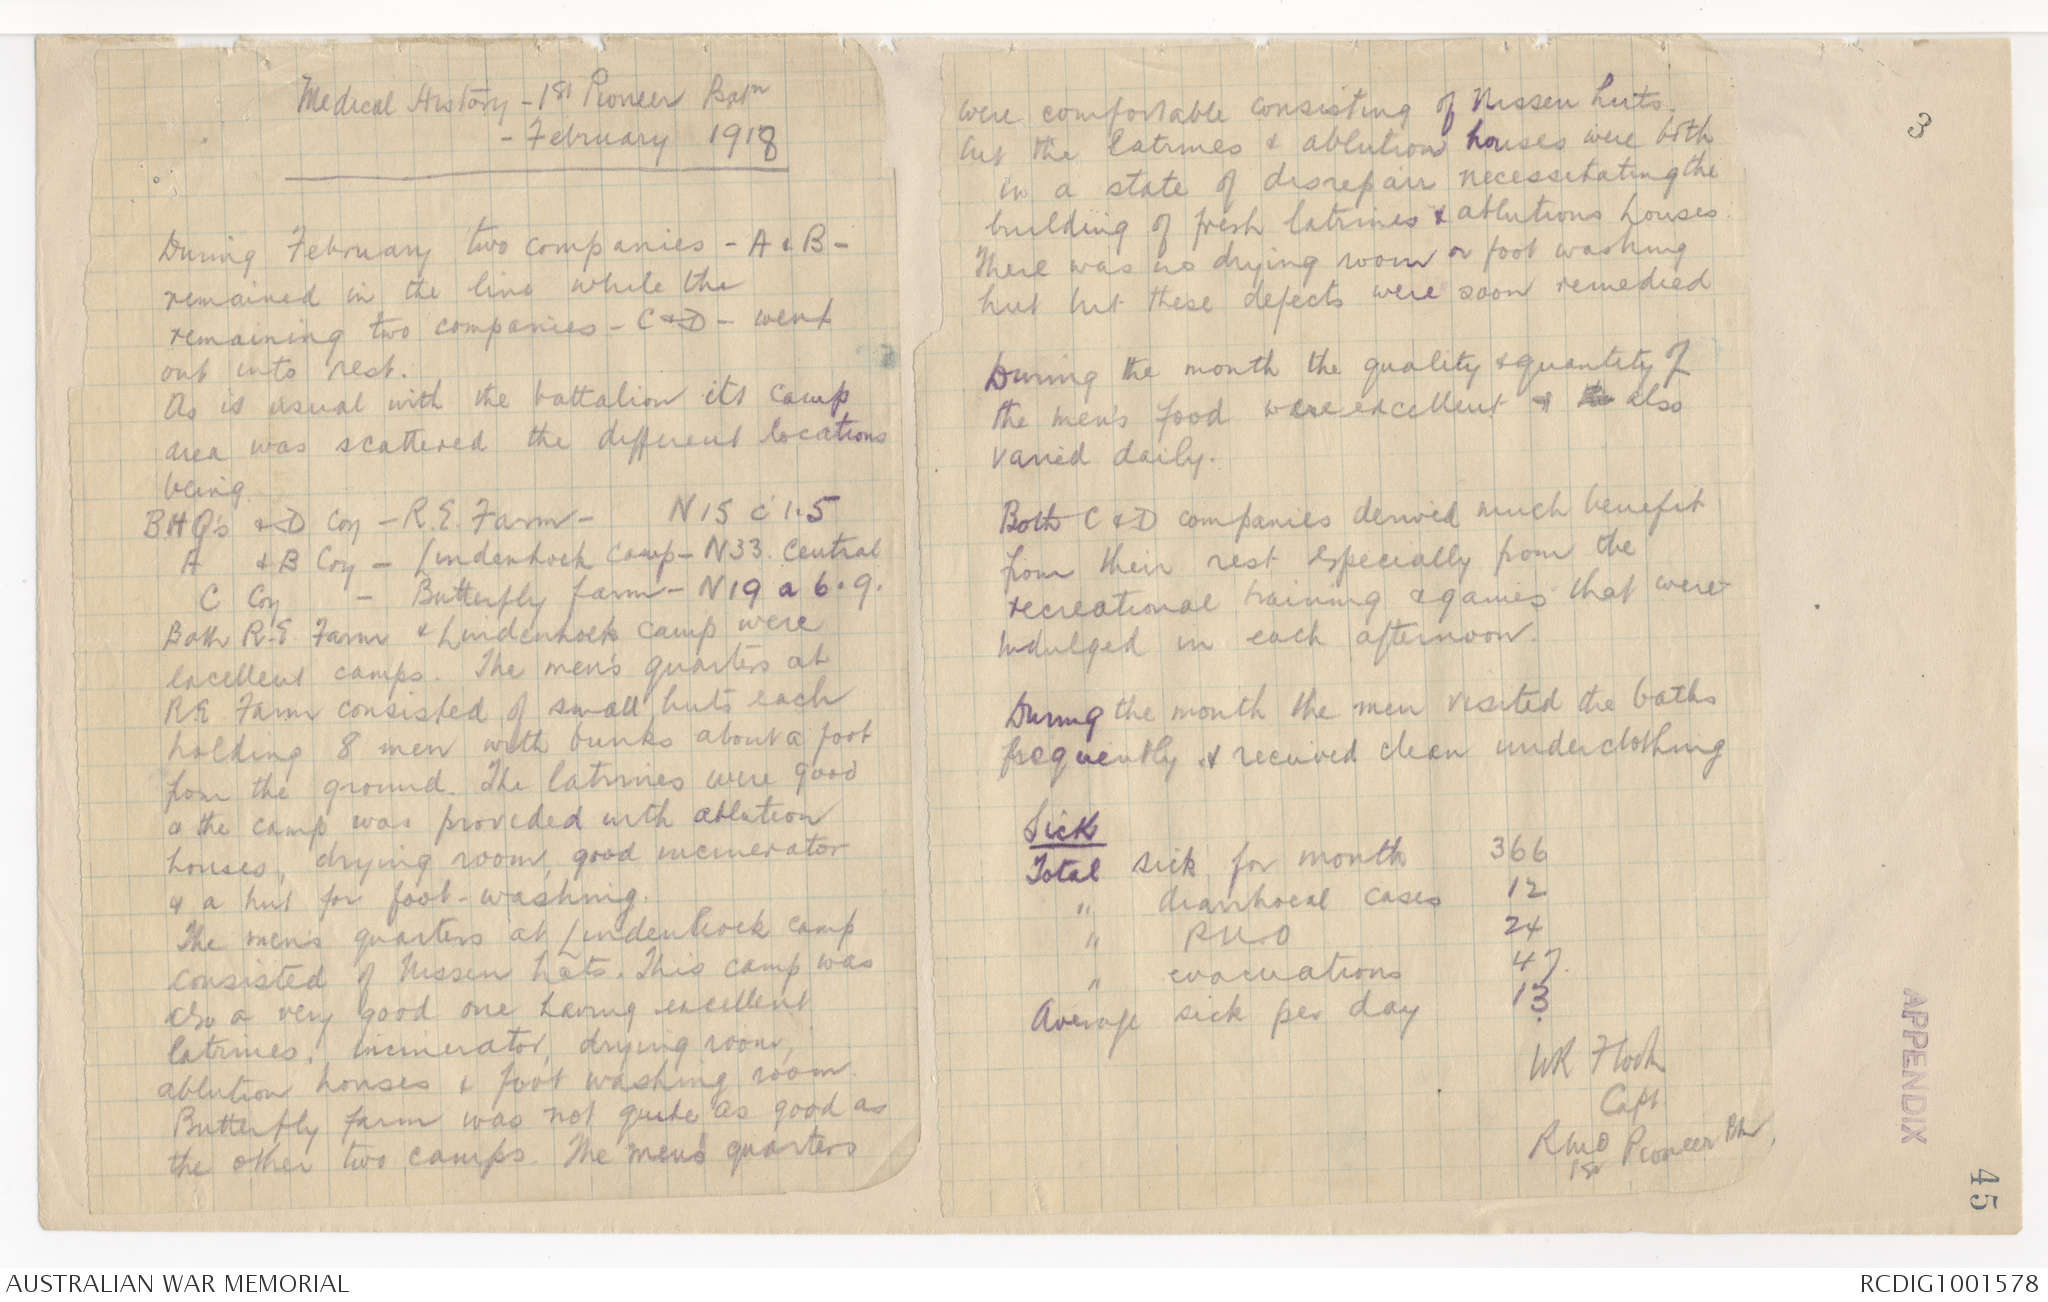 Medical History - 1st Pioneer Batn
- February 1918
During February two companies - A & B -
remained in the line while the
remaining two companies - C & D - went
out into rest.
As is usual with the battalion its camp
area was scattered the different locations
being
BHQ's & D Coy - R.E. Farm - N 15 c 1.5
A & B Coy - Lindenhoek Camp - N33. Central
C Coy - Butterfly farm - N 19 a 6.9.
Both R.E. Farm & Lindenhoek camp were
excellent camps. The men's quarters at
R.E. Farm consisted of small huts each
holding 8 men with bunks about a foot
from the ground. The latrines were good
& the camp was provided with ablution
houses, drying room, good incinerator
& a hut for foot-washing.
The men's quarters at Lindenhoek camp
consisted of Nissen huts. This camp was
also a very good one having excellent
latrines, incinerator, drying room,
ablution houses & foot washing room.
Butterfly Farm was not quite as good as
the other two camps. The men's quarters
were comfortable consisting of Nissen huts.
but the latrines & ablution houses were both
in a state of disrepair necessitating the
building of fresh latrines & ablutions houses.
There was no drying room or foot washing
hut but these defects were soon remedied
During the month the quality & quantity of
the men's food were excellent & also
varied daily.
Both C & D companies derived much benefit
from their rest especially from the
recreational training & games that were
indulged in each afternoon.
During the month the men visited the baths
frequently & received clean underclothing
Sick
Total sick for month 366
" diarrhoeal cases 12
" P.U.O 24
" evacuations 47.
Average sick per day 13
WR Flook
Capt
RMO 1st Pioneer Btn.
3
APPENDIX
45
AUSTRALIAN WAR MEMORIAL
RCDIG1001578